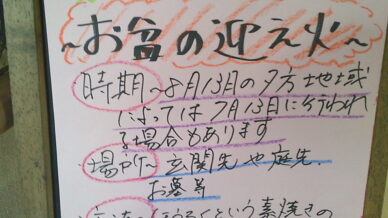 ~お盆の迎え火~
時期~8月13日の夕方地域
によっては7月13日に行われ
る場合もあります
場所~玄関先や庭先.
お墓等
ほうろくという素焼きの